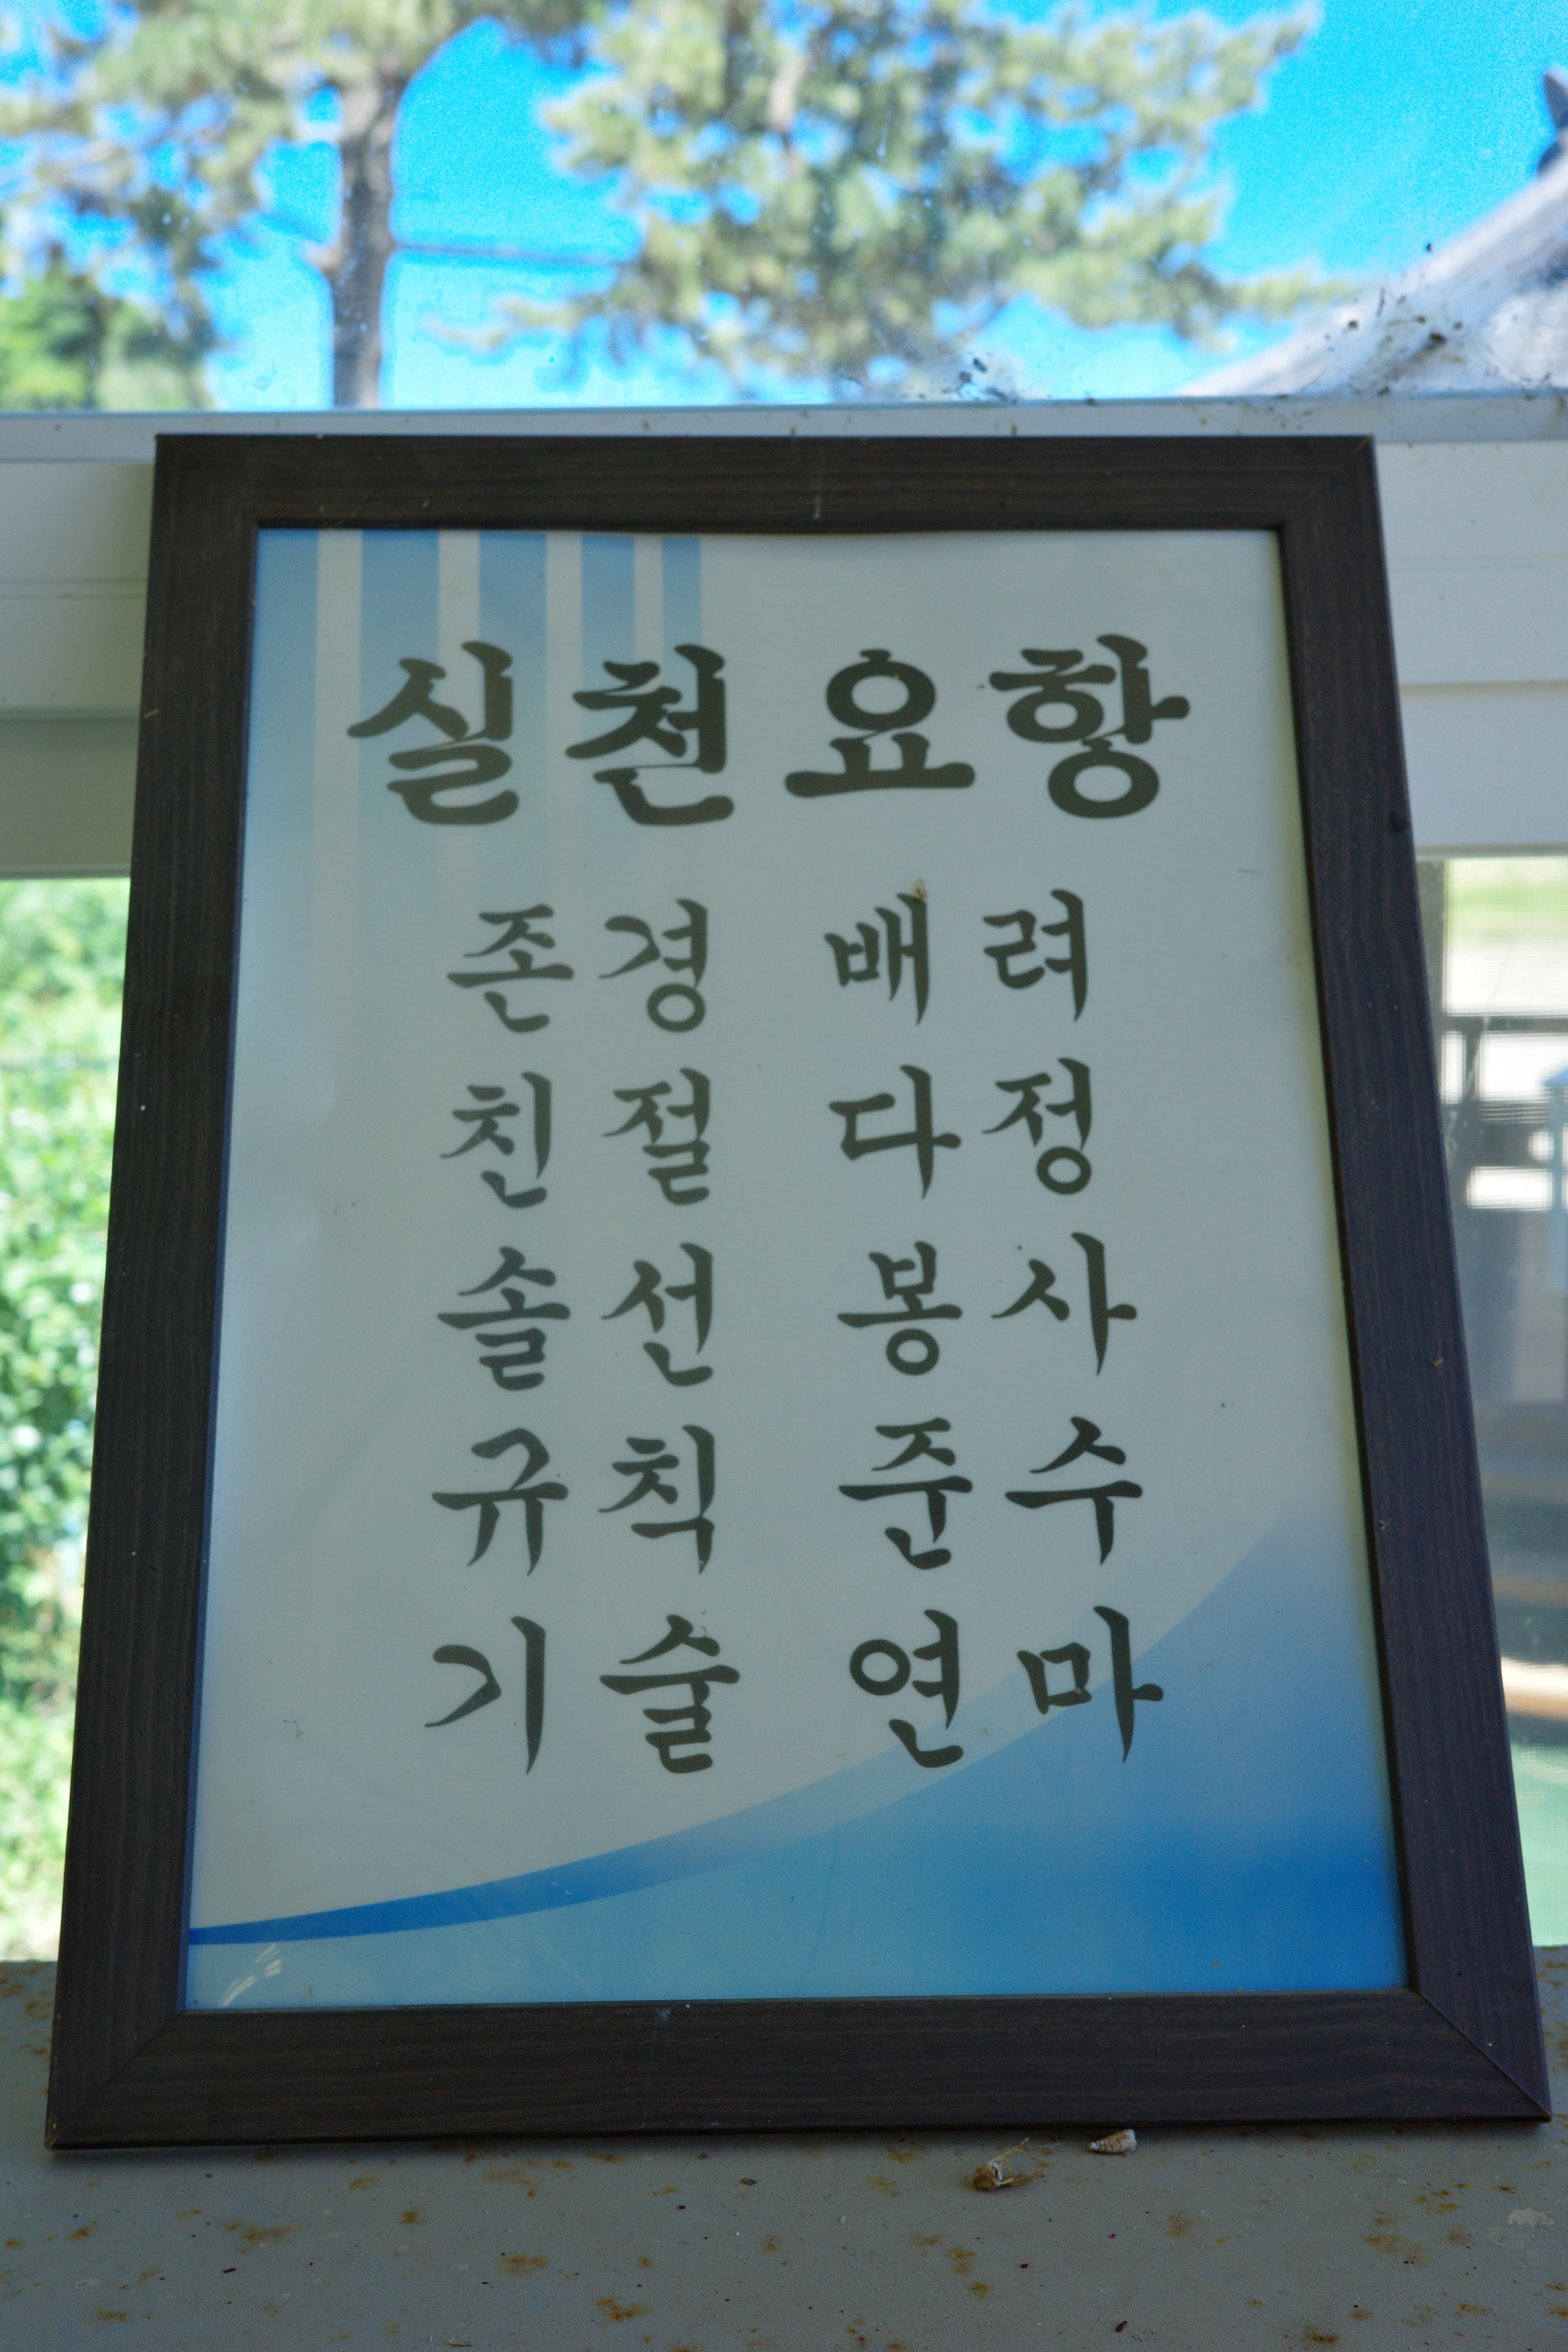 실천요항
존경 배려
친절 다정
솔선 봉사
규칙 준수
기술 연마